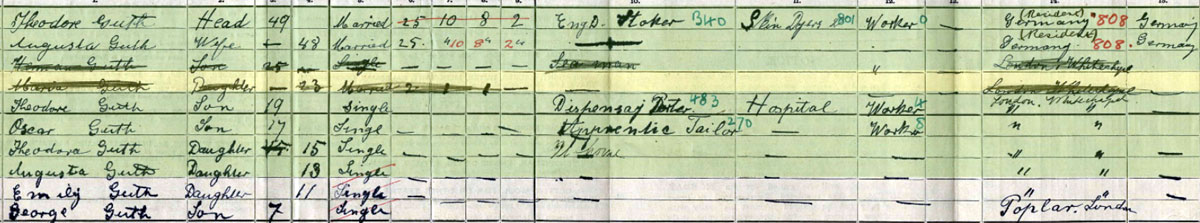 Theodore Guth Head 49 Married 25 10 8 2 Eng D. Stoker 340 Skin Dyers 801 Worker 0 Germany (Resident) 808 Germany
Augusta Guth Wife — 48 Married 25 10 8 2 — Germany (Resident) 808 Germany
Herman Guth Son 25 — Single — Seaman " London Whitechapel
Guth Daughter — 23 Married 2 1 1 — — London Whitechapel
Theodore Guth Son 19 Single — Dispensary Porter 483 Hospital Worker 4 London, Whitechapel
Oscar Guth Son 17 Single — — — — Apprentic Tailor 270 — Worker 8 " "
Theodora Guth Daughter 15 15 Single — — — — At home — — " "
Augusta Guth Daughter 13 Single — — — — — — — " "
Emily Guth Daughter 11 Single — — — — — — —
George Guth Son 7 Single — — — — — — — Poplar, London